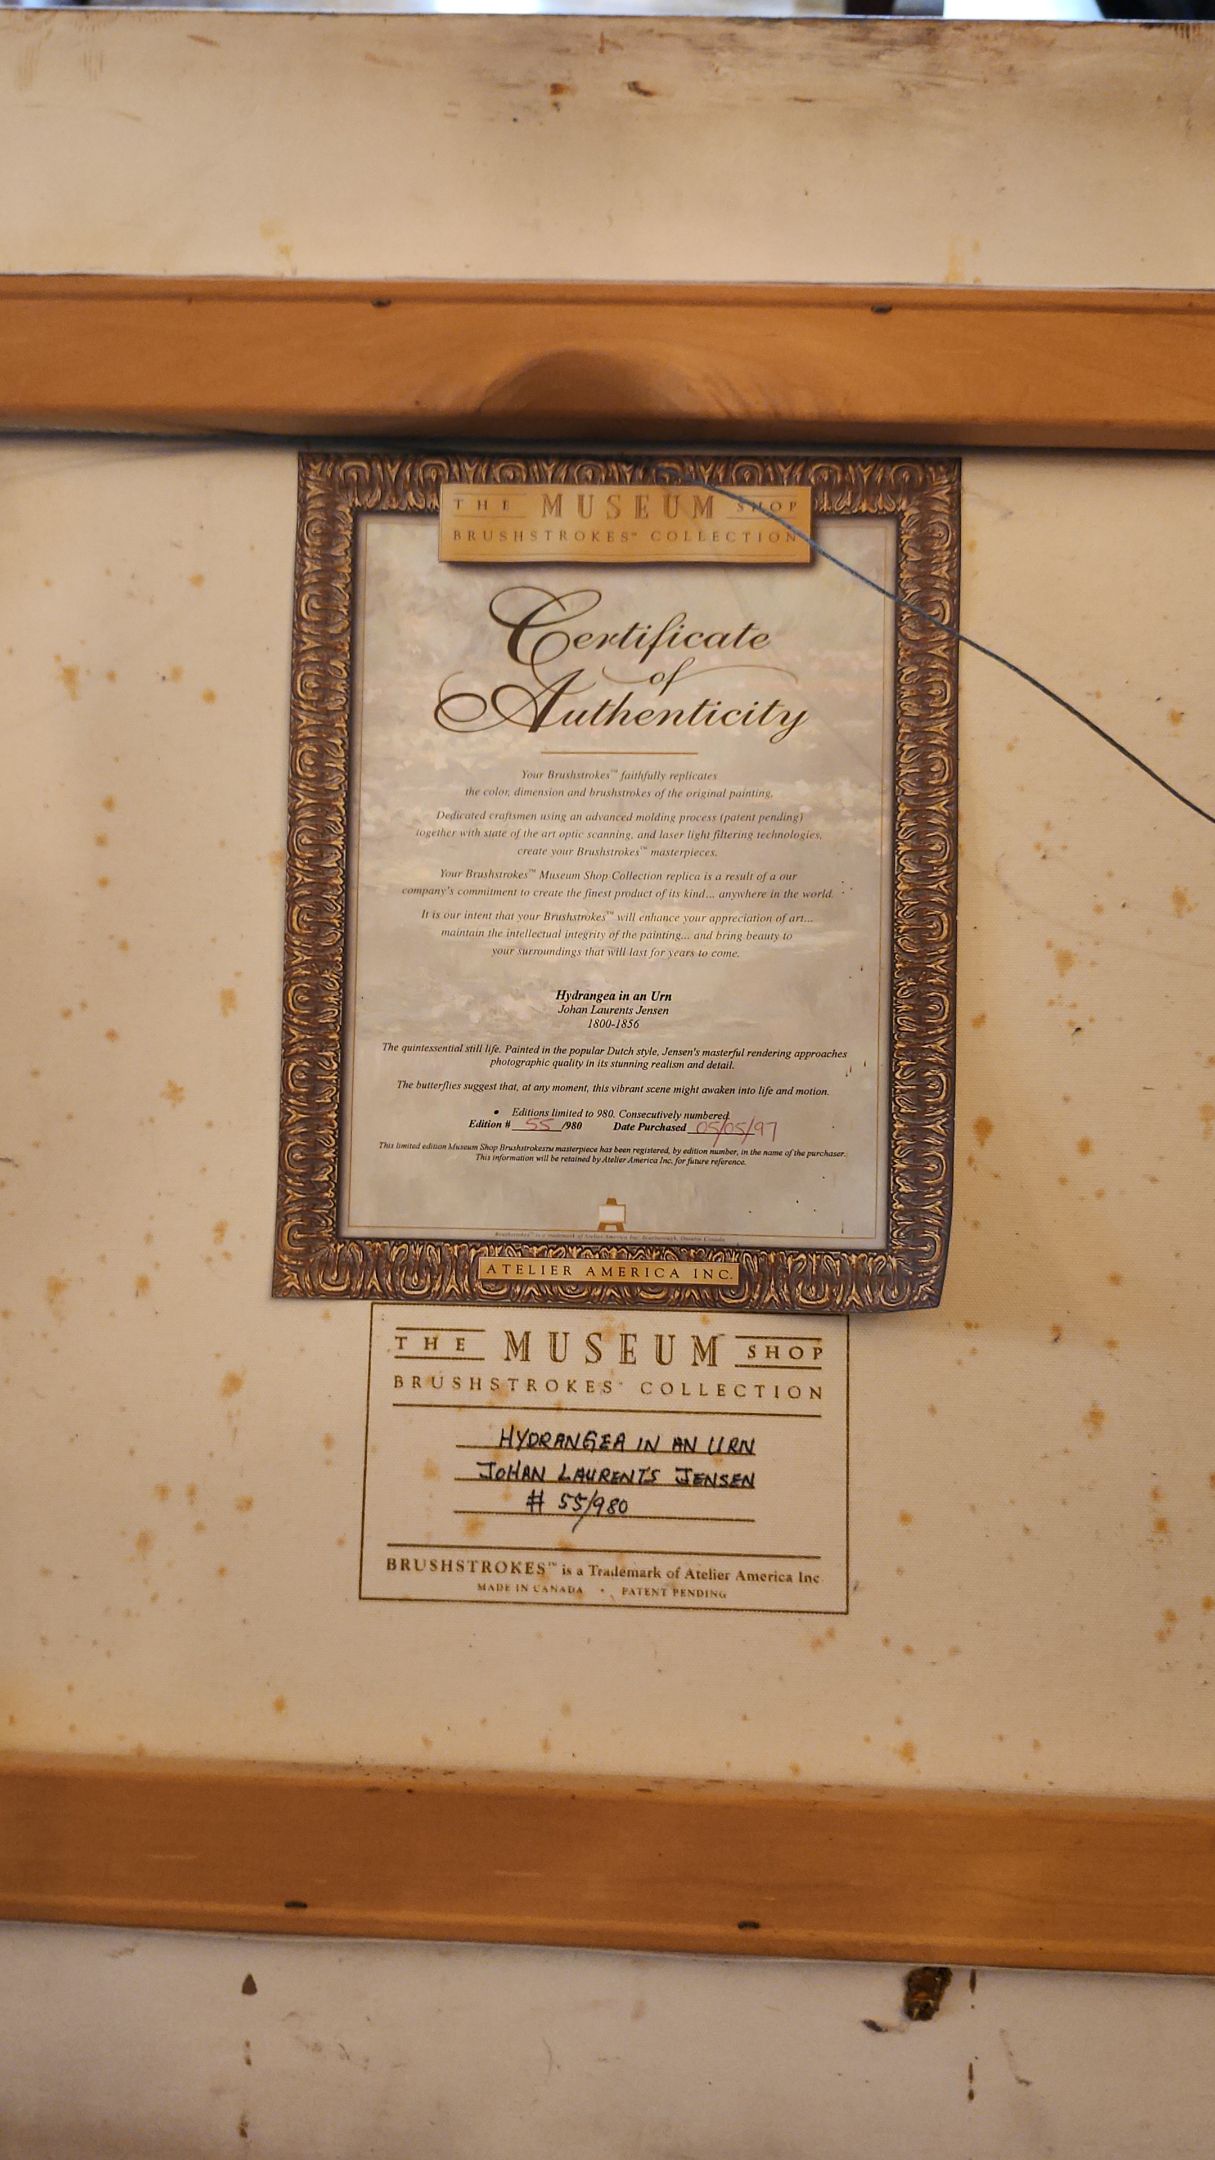 THE MUSEUM SHOP
BRUSHSTROKES™ COLLECTION
Certificate
of
Authenticity
Your Brushstrokes™ faithfully replicates
the color, dimension and brushstrokes of the original painting.
Dedicated craftsmen using an advanced molding process (patent pending)
together with state of the art optic scanning, and laser light filtering technologies,
create your Brushstrokes™ masterpieces.
Your Brushstrokes™ Museum Shop Collection replica is a result of a our
company's commitment to create the finest product of its kind... anywhere in the world.
It is our intent that your Brushstrokes™ will enhance your appreciation of art...
maintain the intellectual integrity of the painting... and bring beauty to
your surroundings that will last for years to come.
Hydrangea in an Urn
Johan Laurents Jensen
1800-1856
The quintessential still life. Painted in the popular Dutch style, Jensen's masterful rendering approaches
photographic quality in its stunning realism and detail.
The butterflies suggest that, at any moment, this vibrant scene might awaken into life and motion.
• Editions limited to 980. Consecutively numbered.
Edition # 55 /980 Date Purchased 05/05/97
This limited edition Museum Shop Brushstrokestm masterpiece has been registered, by edition number, in the name of the purchaser.
This information will be retained by Atelier America Inc. for future reference.
Brushstrokes™ is a trademark of Atelier America Inc. Scarborough, Ontario Canada
ATELIER AMERICA INC.
THE MUSEUM SHOP
BRUSHSTROKES™ COLLECTION
HYDRANGEA IN AN URN
JOHAN LAURENTS JENSEN
# 55/980
BRUSHSTROKES™ is a Trademark of Atelier America Inc.
MADE IN CANADA • PATENT PENDING